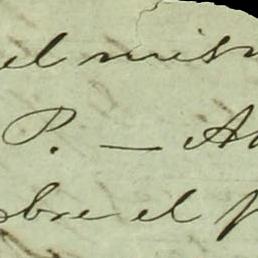 el mism
P. — A
bre el